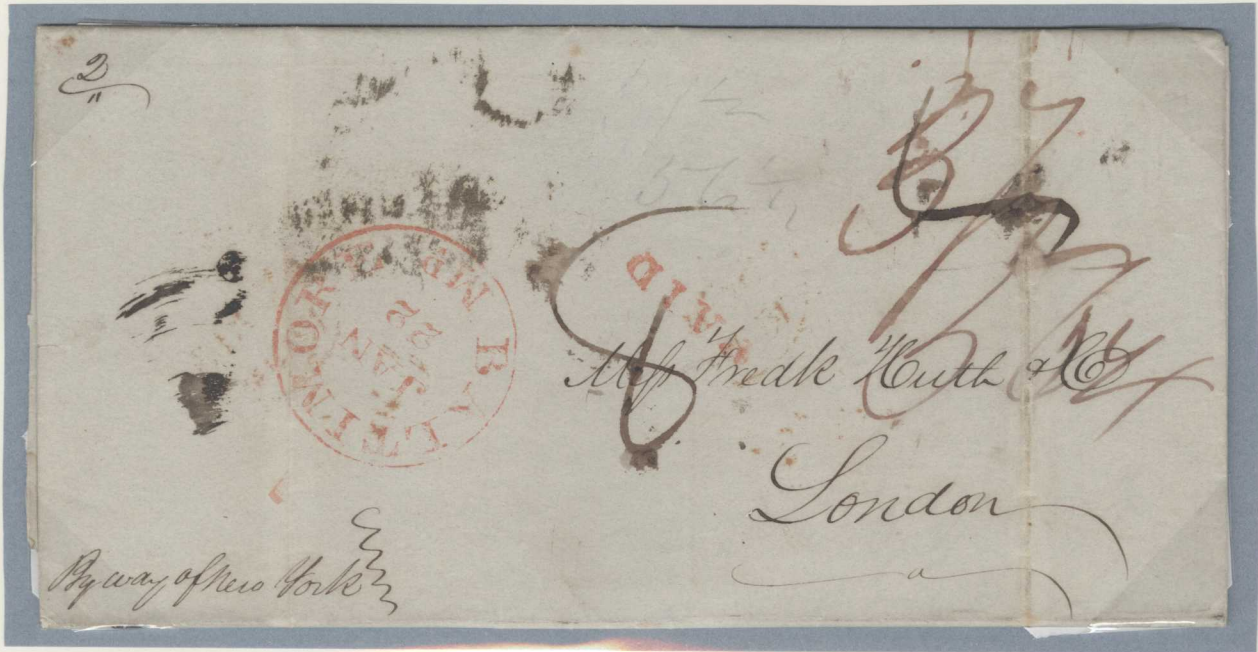 2
56 1/2
BALTIMORE MD.
JAN
22
PAID
8
Mess Fredk Huth & Co
London
By way of New York